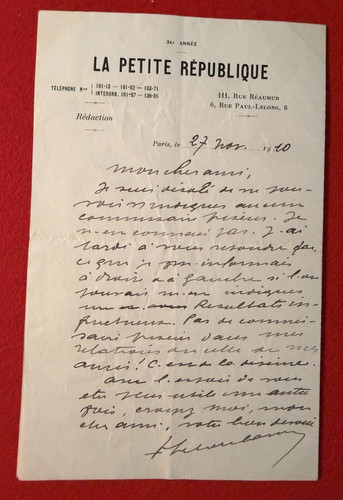 34e ANNÉE
LA PETITE RÉPUBLIQUE
TÉLÉPHONE Nos 101-13 — 101-92 — 103-71
INTERURB. 101-97 — 138-05
111, Rue Réaumur
6, Rue Paul-Lelong, 6
Rédaction
Paris, le 27 Nov. 1910
Mon cher ami,
Je suis désolé de ne pou-
voir vs indiquer aucun
commissaire priseur. Je
n'en connais pas. J'ai
tardé à vous répondre parce
que je m'informais
à droite et à gauche si l'on
pouvait m'en indiquer
un. Résultats in-
fructueux. Pas de commis-
saire priseur dans mes
relations ou celle de mes
amis! C'est de la
Avec l'espoir de vous
être plus utile une autre
fois, croyez moi, mon
cher ami, votre bien dévoué